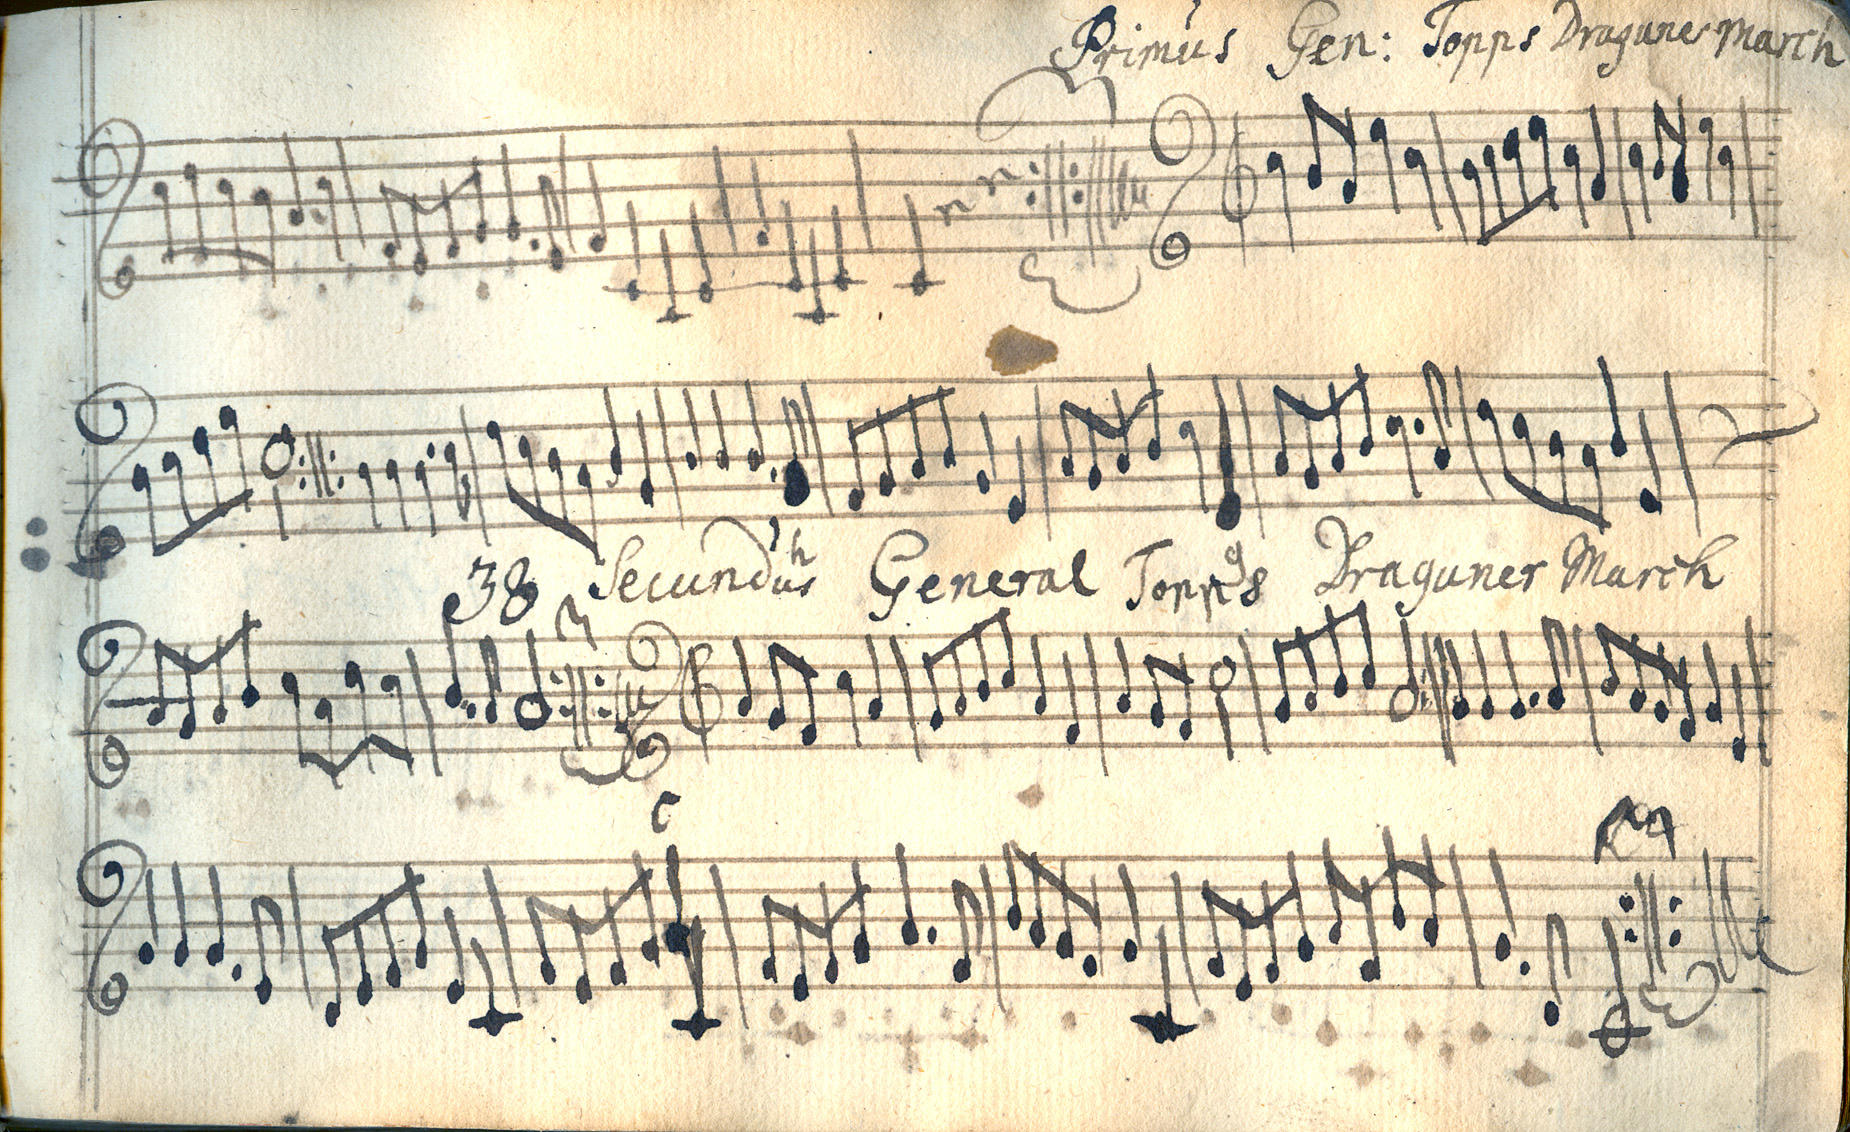 Primus Gen: Topps Draguner March
38 Secundus General Topps Draguner March
C